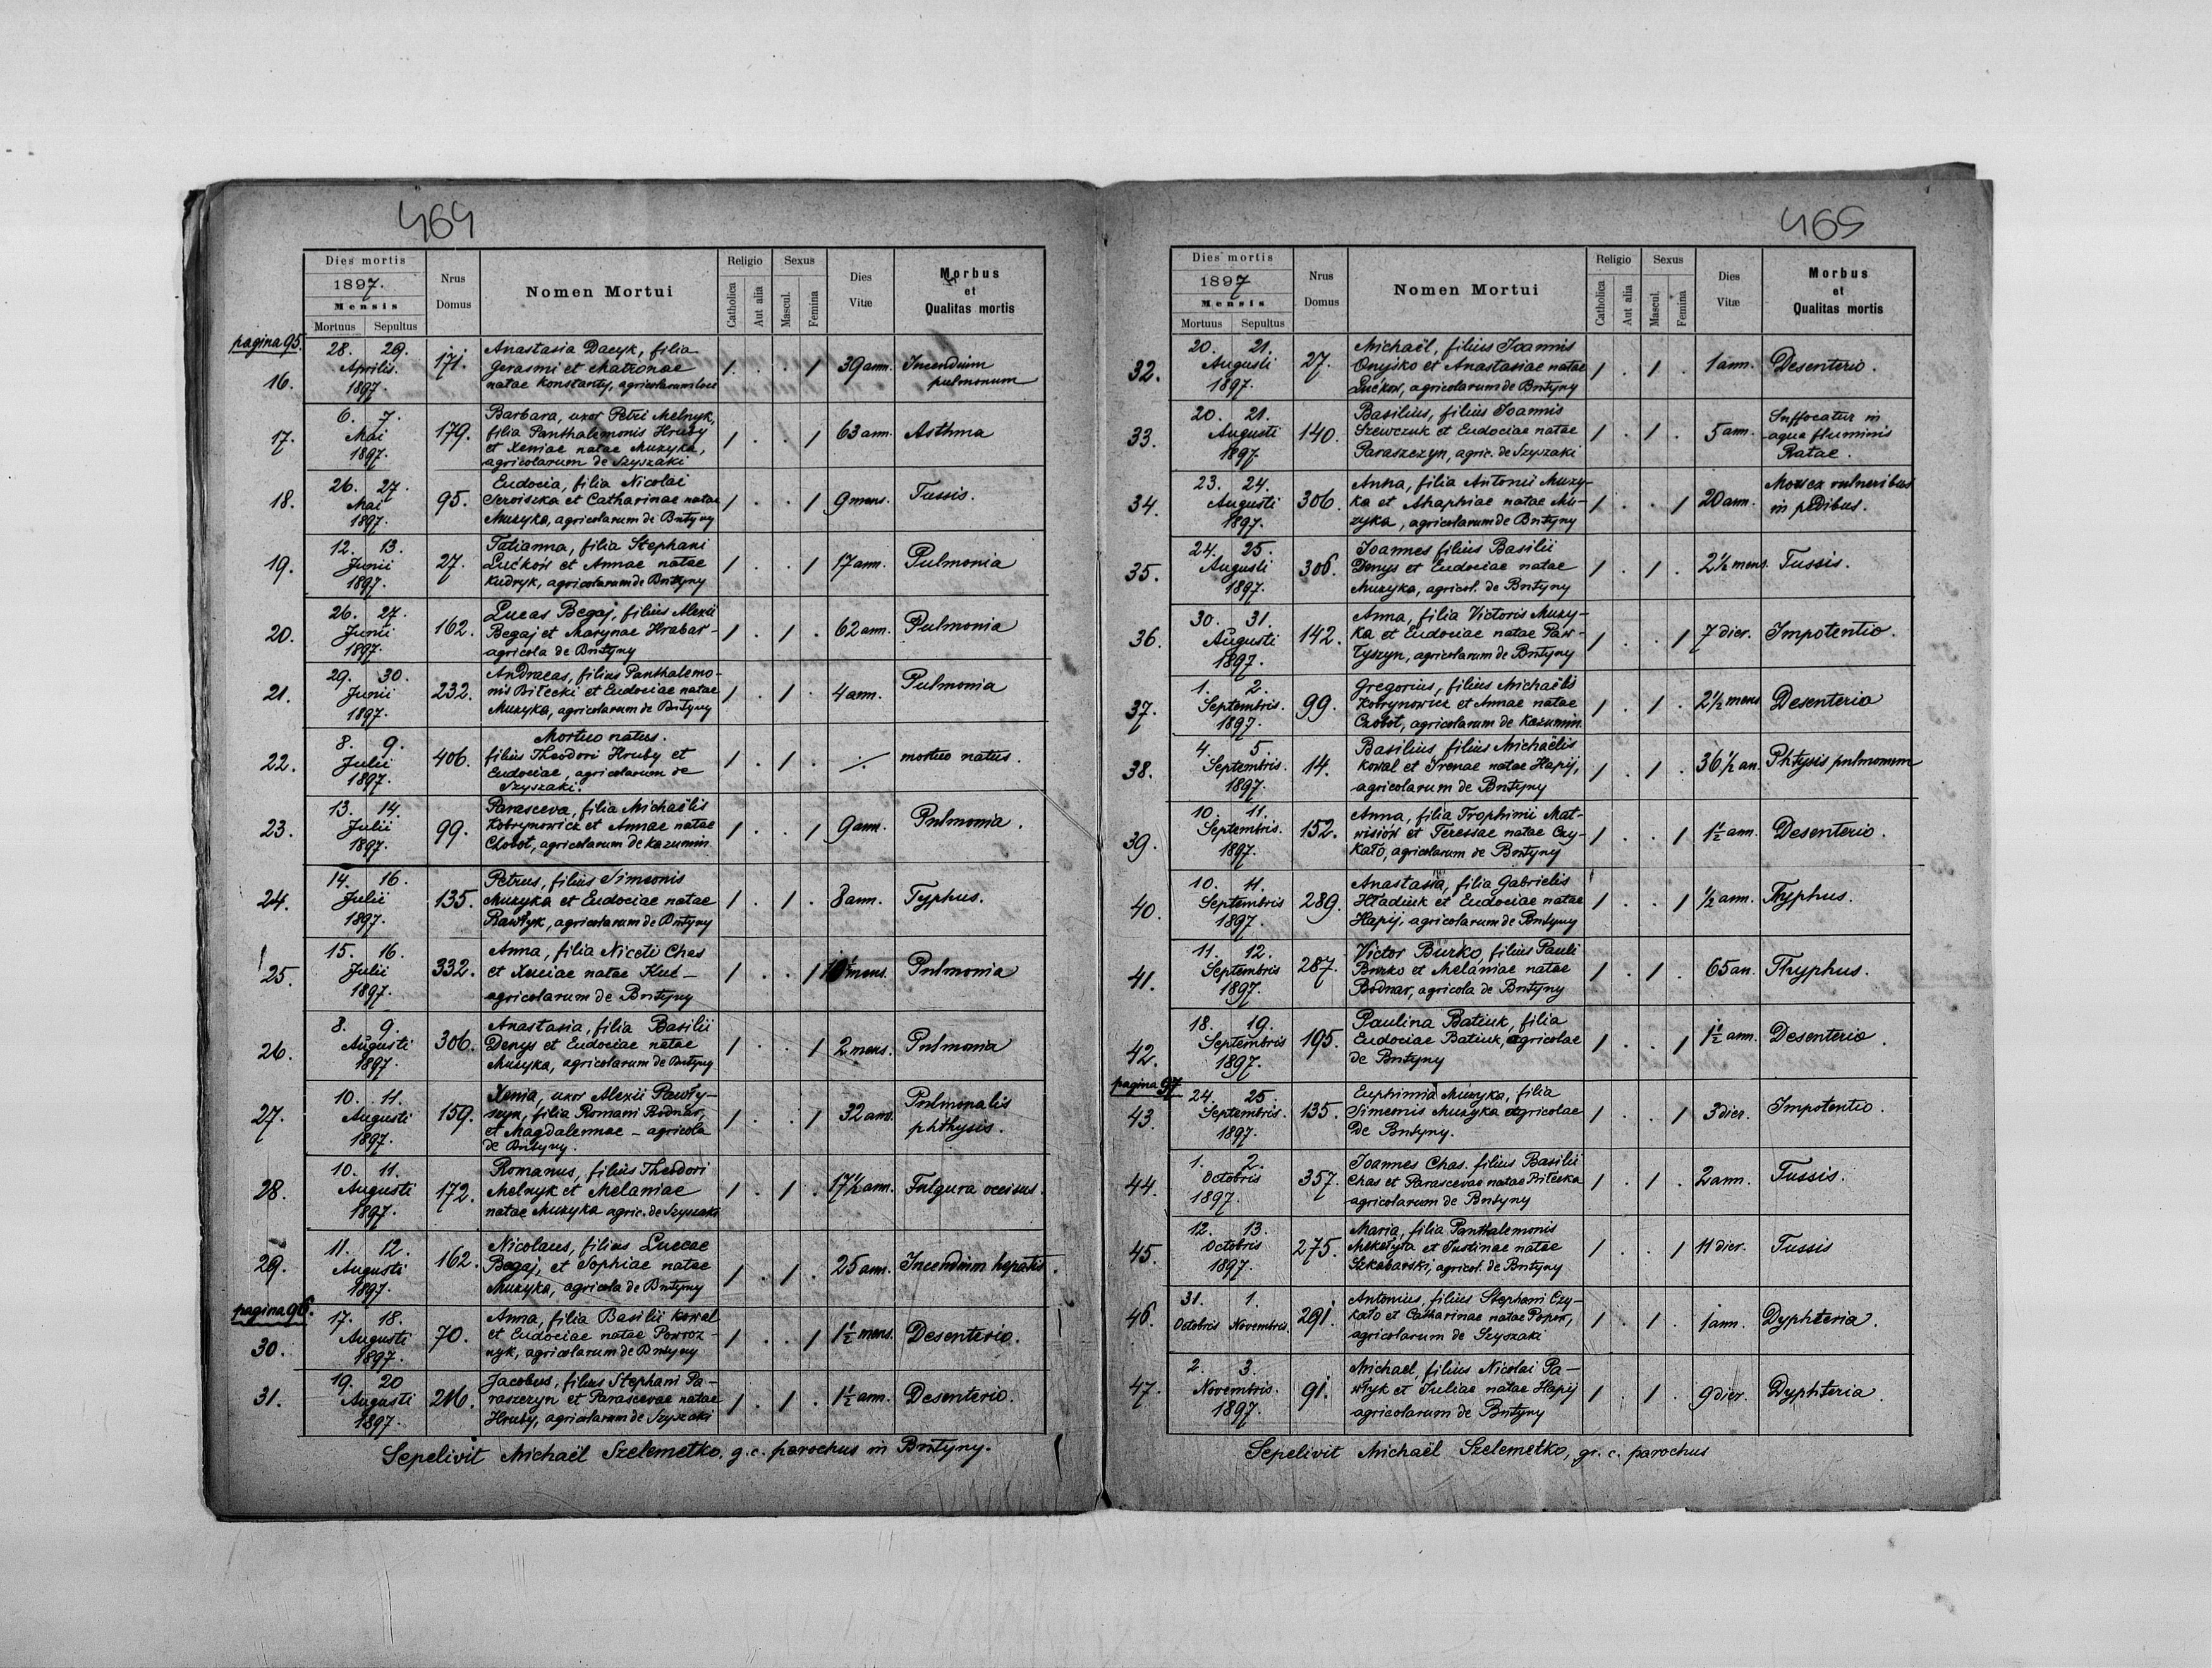 464
Dies mortis
1897.
Mensis
Mortuus Sepultus
Nrus
Domus
Nomen Mortui
Religio
Catholica
Aut alia
Sexus
Mascul.
Femina
Dies
Vitæ
Morbus
et
Qualitas mortis
pagina 95.
16.
28. 29.
Aprilis.
1897.
171.
Anastasia Dacyk, filia
Gerasmi et Matronae
natae Konstanty, agricolarum
1 . . 1
39 ann.
Incendium
pulmonum
17.
6. 7.
Mai
1897.
179.
Barbara, uxor Petri Melnyk,
filia Panthalemonis Hruby
et Xeniae natae Muzyka,
agricolarum de Szyszaki
1 . . 1
63 ann.
Asthma
18.
26. 27.
Mai
1897.
95.
Eudocia, filia Nicolai
et Catharinae natae
Muzyka, agricolarum de Butyny
1 . . 1
9 mens.
Tussis.
19.
12. 13.
Junii
1897.
27.
Tatianna, filia Stephani
Lućków et Annae natae
Kudryk, agricolarum de Butyny
1 . . 1
17 ann.
Pulmonia
20.
26. 27.
Junii
1897.
162.
Lucas Begaj, filius Alexii
Begaj et Marynae Hrabar -
agricola de Butyny
1 . 1 .
62 ann.
Pulmonia
21.
29. 30.
Junii
1897.
232.
Andraeas, filius Panthalemo-
nis Biłecki et Eudociae natae
Muzyka, agricolarum de Butyny
1 . 1 .
4 ann.
Pulmonia
22.
8. 9.
Julii
1897.
406.
Mortuo natus.
filius Theodori Hruby et
Eudociae, agricolarum de
Szyszaki.
1 . 1 .
mortuo natus.
23.
13. 14.
Julii
1897.
99.
Parasceva, filia Michaëlis
Kobrynowicz et Annae natae
Chobot, agricolarum de Kazumin
1 . . 1
9 ann.
Pulmonia.
24.
14. 16.
Julii
1897.
135.
Petrus, filius Simeonis
Muzyka et Eudociae natae
Pawłyk, agricolarum de Butyny
1 . 1 .
8 ann.
Typhus.
25.
15. 16.
Julii
1897.
332.
Anna, filia Niceti Chas
et Xeniae natae -
agricolarum de Butyny
1 . . 1
mens.
Pulmonia
26.
8. 9.
Augusti
1897.
306.
Anastasia, filia Basilii
Denys et Eudociae natae
Muzyka, agricolarum de Butyny
1 . . 1
2 mens.
Pulmonia
27.
10. 11.
Augusti
1897.
159.
Xenia, uxor Alexii Pawły-
szyn, filia Romani Bodnar,
et Magdalennae - agricola
de Butyny.
1 . . 1
32 ann.
Pulmonalis
phthysis.
28.
10. 11.
Augusti
1897.
172.
Romanus, filius Theodori
Melnyk et Melaniae
natae Muzyka agric. de Szyszaki
1 . 1 .
17½ ann.
Fulgura occisus.
29.
11. 12.
Augusti
1897.
162.
Nicolaus, filius Luccae
Begaj, et Sophiae natae
Muzyka, agricola de Butyny
1 . 1 .
25 ann.
Incendium hepatis.
pagina 96.
30.
17. 18.
Augusti
1897.
70.
Anna, filia Basilii Kowal
et Eudociae natae Powroz-
nyk, agricolarum de Butyny
1 . . 1
1½ mens.
Desenterio.
31.
19. 20
Augusti
1897.
Jacobus, filius Stephani Pa-
raszczyn et Parascevae natae
Hruby, agricolarum de Szyszaki
1 . 1 .
1½ ann.
Desenterio.
Sepelivit Michaël Szelemetko. g. c. parochus in Butyny.
465
Dies mortis
1897
Mensis
Mortuus Sepultus
Nrus
Domus
Nomen Mortui
Religio
Catholica
Aut alia
Sexus
Mascul.
Femina
Dies
Vitæ
Morbus
et
Qualitas mortis
32.
20. 21.
Augusti
1897.
27.
Michaël, filius Joannis
Onyśko et Anastasiae natae
Lućków, agricolarum de Butyny
1 . 1 .
1 ann.
Desenterio.
33.
20. 21.
Augusti
1897.
140.
Basilius, filius Joannis
Szewczuk et Eudociae natae
Paraszczyn, agric. de Szyszaki
1 . 1 .
5 ann.
Suffocatur in
aqua fluminis
Ratae.
34.
23. 24.
Augusti
1897.
306.
Anna, filia Antonii Muzy-
ka et Ahaphiae natae Mu-
zyka, agricolarum de Butyny
1 . . 1
20 ann.
vulneribus
in pedibus.
35.
24. 25.
Augusti
1897.
306.
Joannes filius Basilii
Denys et Eudociae natae
Muzyka, agricol. de Butyny
1 . 1 .
2½ mens.
Tussis.
36.
30. 31.
Augusti
1897.
142.
Anna, filia Victoris Muzy-
ka et Eudociae natae Paw-
łyszyn, agricolarum de Butyny
1 . . 1
7 dier.
Impotentio.
37.
1. 2.
Septembris.
1897.
99.
Gregorius, filius Michaëlis
Kobrynowicz et Annae natae
Czobot, agricolarum de Kazumin.
1 . 1 .
2½ mens
Desenteria
38.
4. 5.
Septembris.
1897.
14.
Basilius, filius Michaëlis
Kowal et Irenae natae Hapij,
agricolarum de Butyny
1 . 1 .
36½ an.
Phtysis pulmonum
39.
10. 11.
Septembris.
1897.
152.
Anna, filia Trophimii Mat-
wisiów et Teressae natae Czy-
kało, agricolarum de Butyny
1 . . 1
1½ ann.
Desenterio.
40.
10. 11.
Septembris
1897.
289.
Anastasia, filia Gabrielis
Hładiuk et Eudociae natae
Hapij, agricolarum de Butyny
1 . . 1
½ ann.
Thyphus.
41.
11. 12.
Septembris
1897.
287.
Victor Burko, filius Pauli
Burko et Melaniae natae
Bodnar, agricola de Butyny
1 . 1 .
65 an.
Thyphus.
42.
18. 19.
Septembris
1897.
195.
Paulina Batiuk, filia
Eudociae Batiuk, agricolae
de Butyny
1 . . 1
1½ ann.
Desenteria.
pagina 97
43.
24. 25.
Septembris.
1897.
135.
Euphimia Muzyka, filia
Simeonis Muzyka agricolae
de Butyny.
1 . . 1
3 dier.
Impotentio.
44.
1. 2.
Octobris
1897.
357.
Joannes Chas. filius Basilii
Chas et Parascevae natae Biłecka
agricolarum de Butyny
1 . 1 .
2 ann.
Tussis.
45.
12. 13.
Octobris
1897.
275.
Maria, filia Panthalemonis
Mekełyta et Justinae natae
Szkabarski, agricol. de Butyny
1 . . 1
11 dier.
Tussis
46.
31. 1.
Octobris Novembris.
291.
Antonius, filius Stephani Czy-
kało et Catharinae natae Popow,
agricolarum de Szyszaki
1 . 1 .
1 ann.
Dyphteria.
47.
2. 3.
Novembris.
1897.
91.
Michael, filius Nicolai Pa-
włyk et Juliae natae Hapij
agricolarum de Butyny
1 . 1 .
9 dier.
Dyphteria.
Sepelivit Michaël Szelemetko, gr. c. parochus